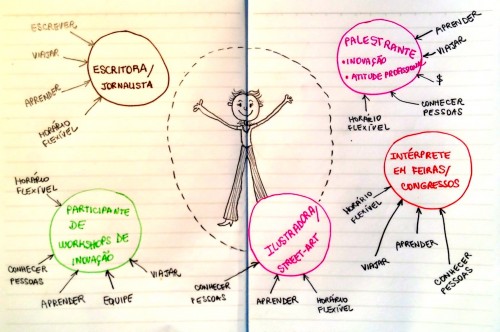 ESCREVER
VIAJAR
APRENDER
HORÁRIO
FLEXÍVEL
ESCRITORA/
JORNALISTA
PALESTRANTE
• INOVAÇÃO
• ATITUDE PROFISSIONAL
APRENDER
VIAJAR
$
CONHECER
PESSOAS
HORÁRIO
FLEXÍVEL
INTÉRPRETE
EM FEIRAS/
CONGRESSOS
HORÁRIO
FLEXÍVEL
VIAJAR
APRENDER
CONHECER
PESSOAS
HORÁRIO
FLEXÍVEL
PARTICIPANTE
DE
WORKSHOPS DE
INOVAÇÃO
CONHECER
PESSOAS
APRENDER
EQUIPE
VIAJAR
ILUSTRADORA/
STREET-ART
CONHECER
PESSOAS
APRENDER
HORÁRIO
FLEXÍVEL